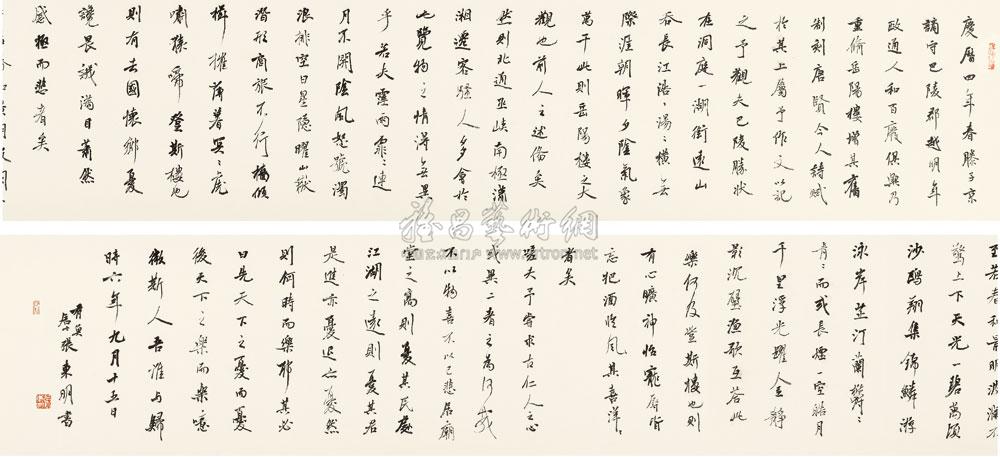 慶曆四年春滕子京
謫守巴陵郡越明年
政通人和百廢俱興乃
重脩岳陽樓增其舊
制刻唐賢今人詩賦
於其上屬予作文以記
之予觀夫巴陵勝狀
在洞庭一湖銜遠山
吞長江浩浩湯湯橫無
際涯朝暉夕陰氣象
萬千此則岳陽樓之大
觀也前人之述備矣
然則北通巫峽南極瀟
湘遷客騷人多會於
此覽物之情得無異
乎若夫霪雨霏霏連
月不開陰風怒號濁
浪排空日星隱曜山嶽
潛形商旅不行檣傾
楫摧薄暮冥冥虎
嘯猿啼登斯樓也
則有去國懷鄉憂
讒畏譏滿目蕭然
感極而悲者矣
至若春和景明波瀾不
驚上下天光一碧萬頃
沙鷗翔集錦鱗游
泳岸芷汀蘭鬱鬱
青青而或長煙一空皓月
千里浮光躍金靜
影沉璧漁歌互答此
樂何及登斯樓也則
有心曠神怡寵辱皆
忘把酒臨風其喜洋洋
者矣
嗟夫予嘗求古仁人之心
或異二者之為何哉
不以物喜不以己悲居廟
堂之高則憂其民處
江湖之遠則憂其君
是進亦憂退亦憂然
則何時而樂耶其必
曰先天下之憂而憂
後天下之樂而樂噫
微斯人吾誰與歸
時六年九月十五日
張東明書
雅昌藝術網